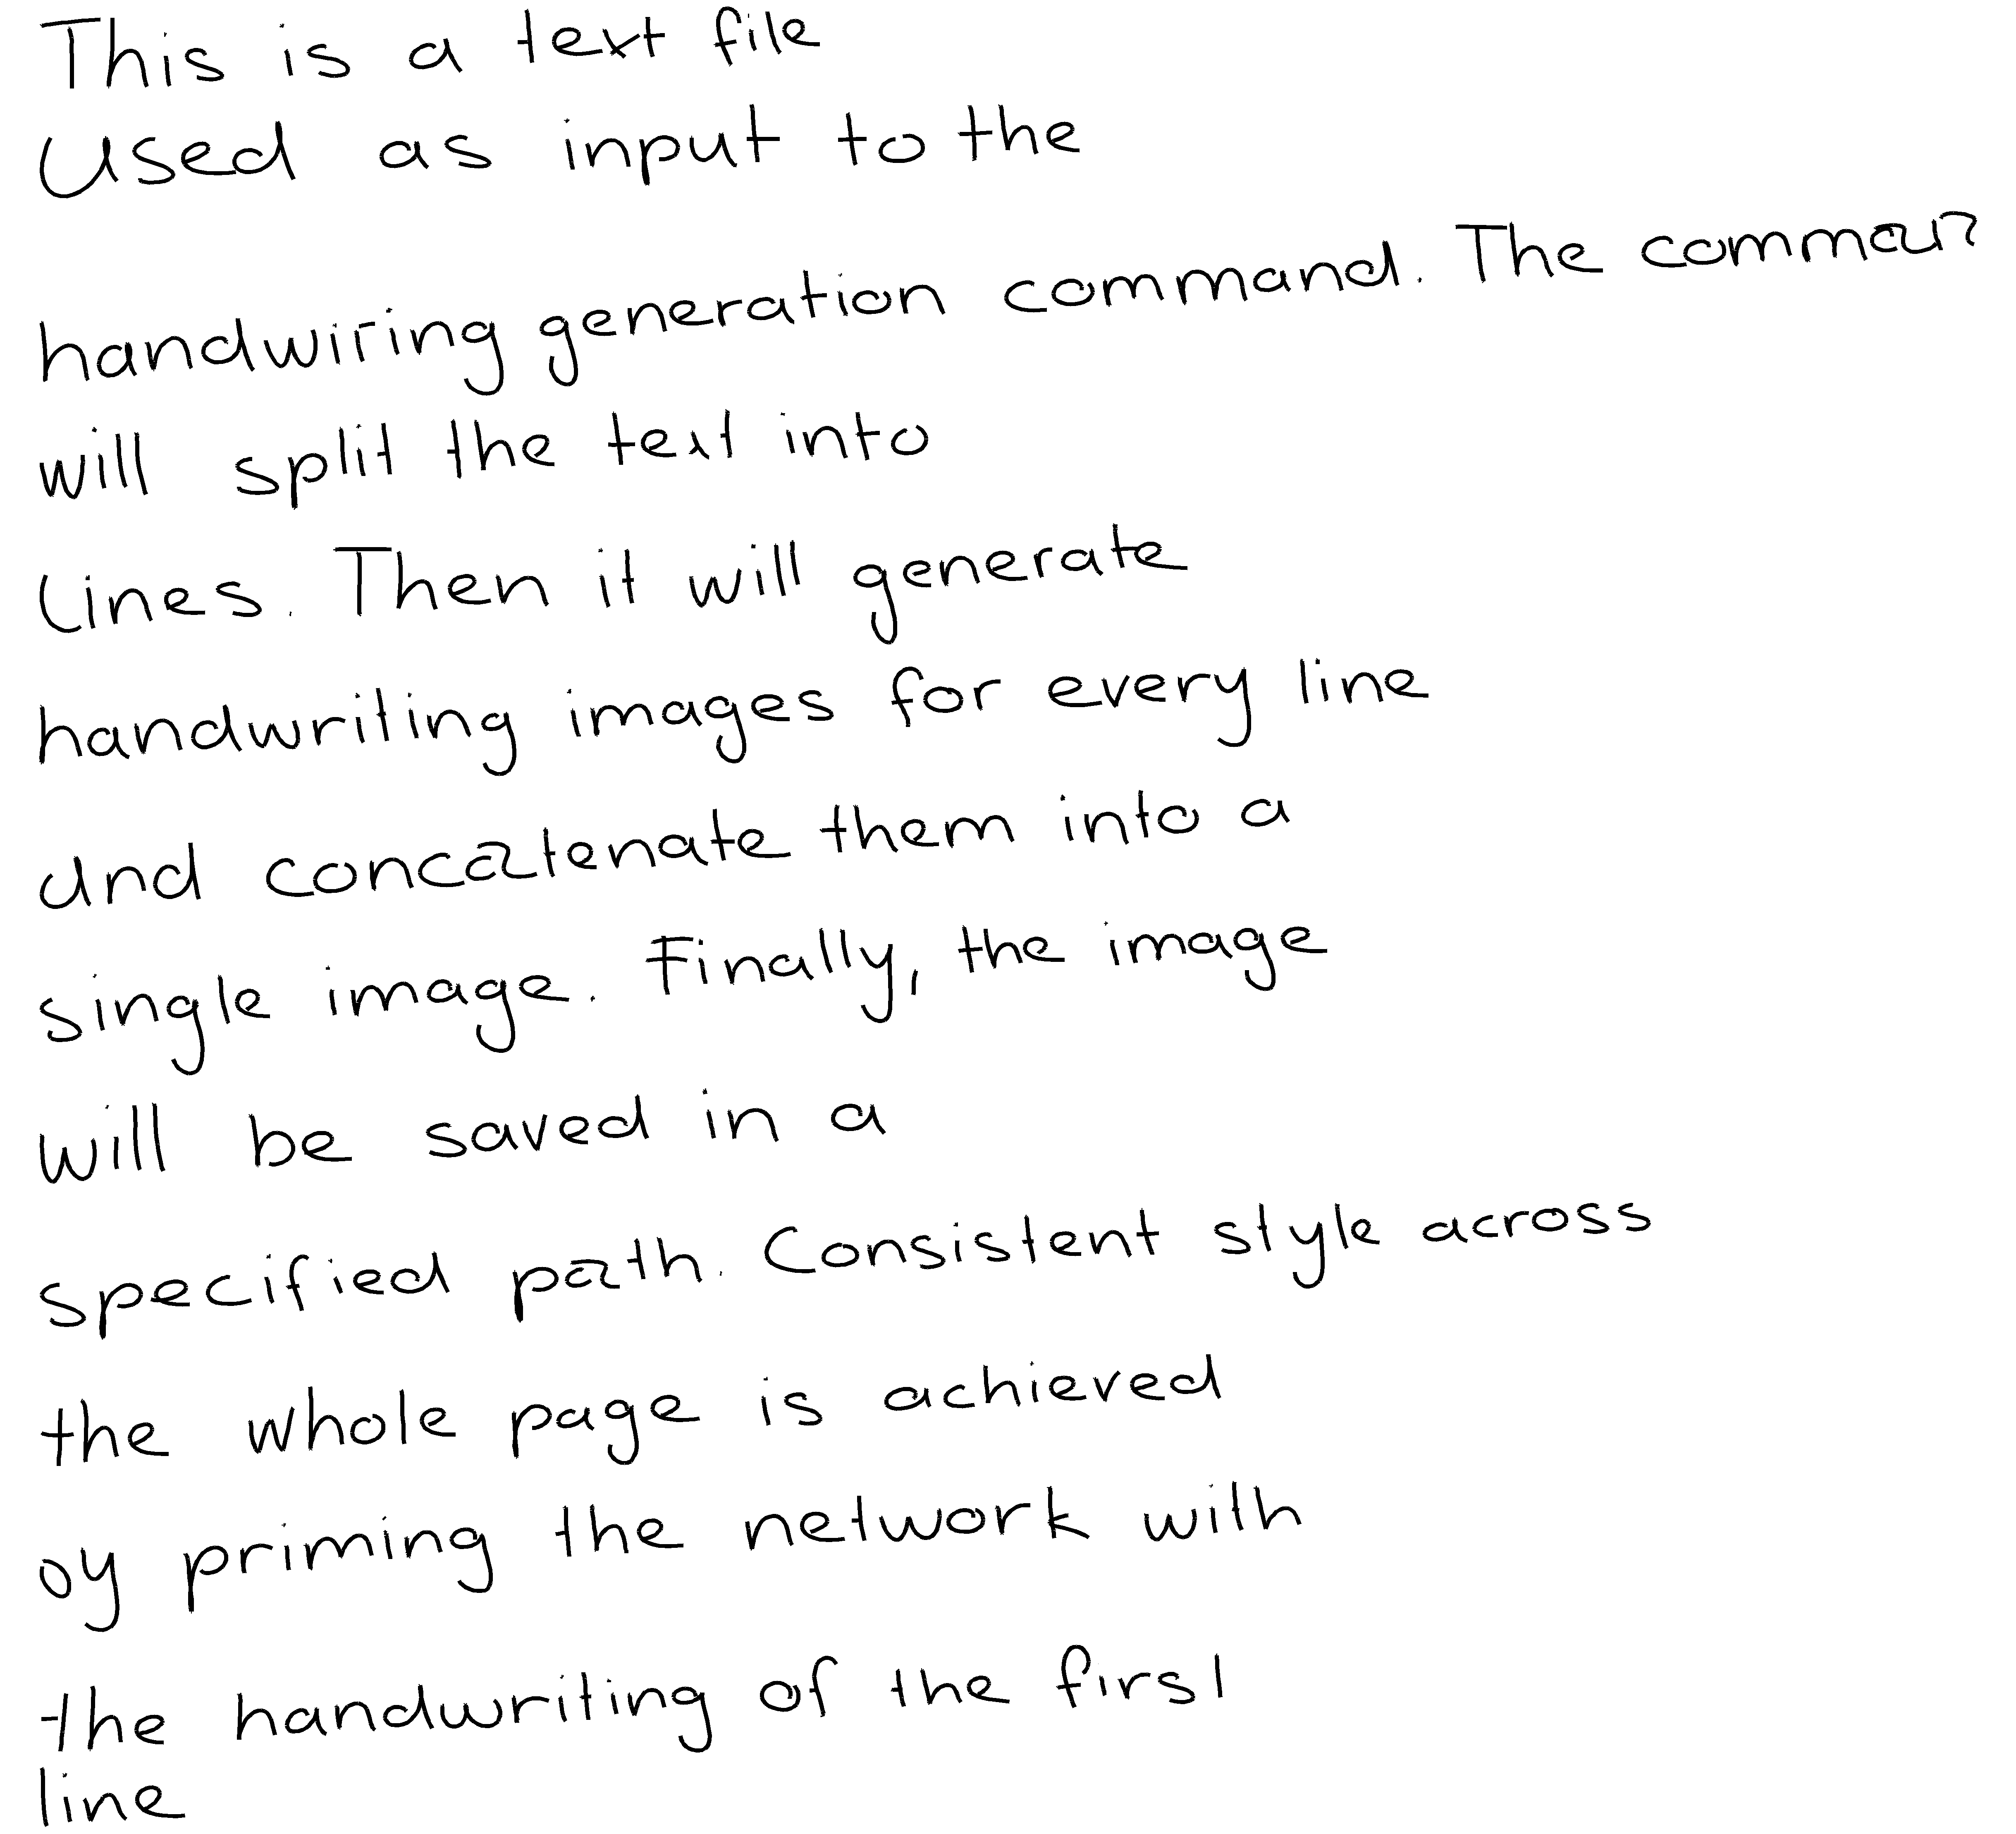 This is a text file
Used as input to the
handwiring generation command. The comman
will split the text into
Lines. Then it will generate
handwriting images for every line
and concatenate them into a
single image. Finally, the image
will be saved in a
specified path. Consistent style across
the whole page is achieved
oy priming the network with
the handwriting of the first
line